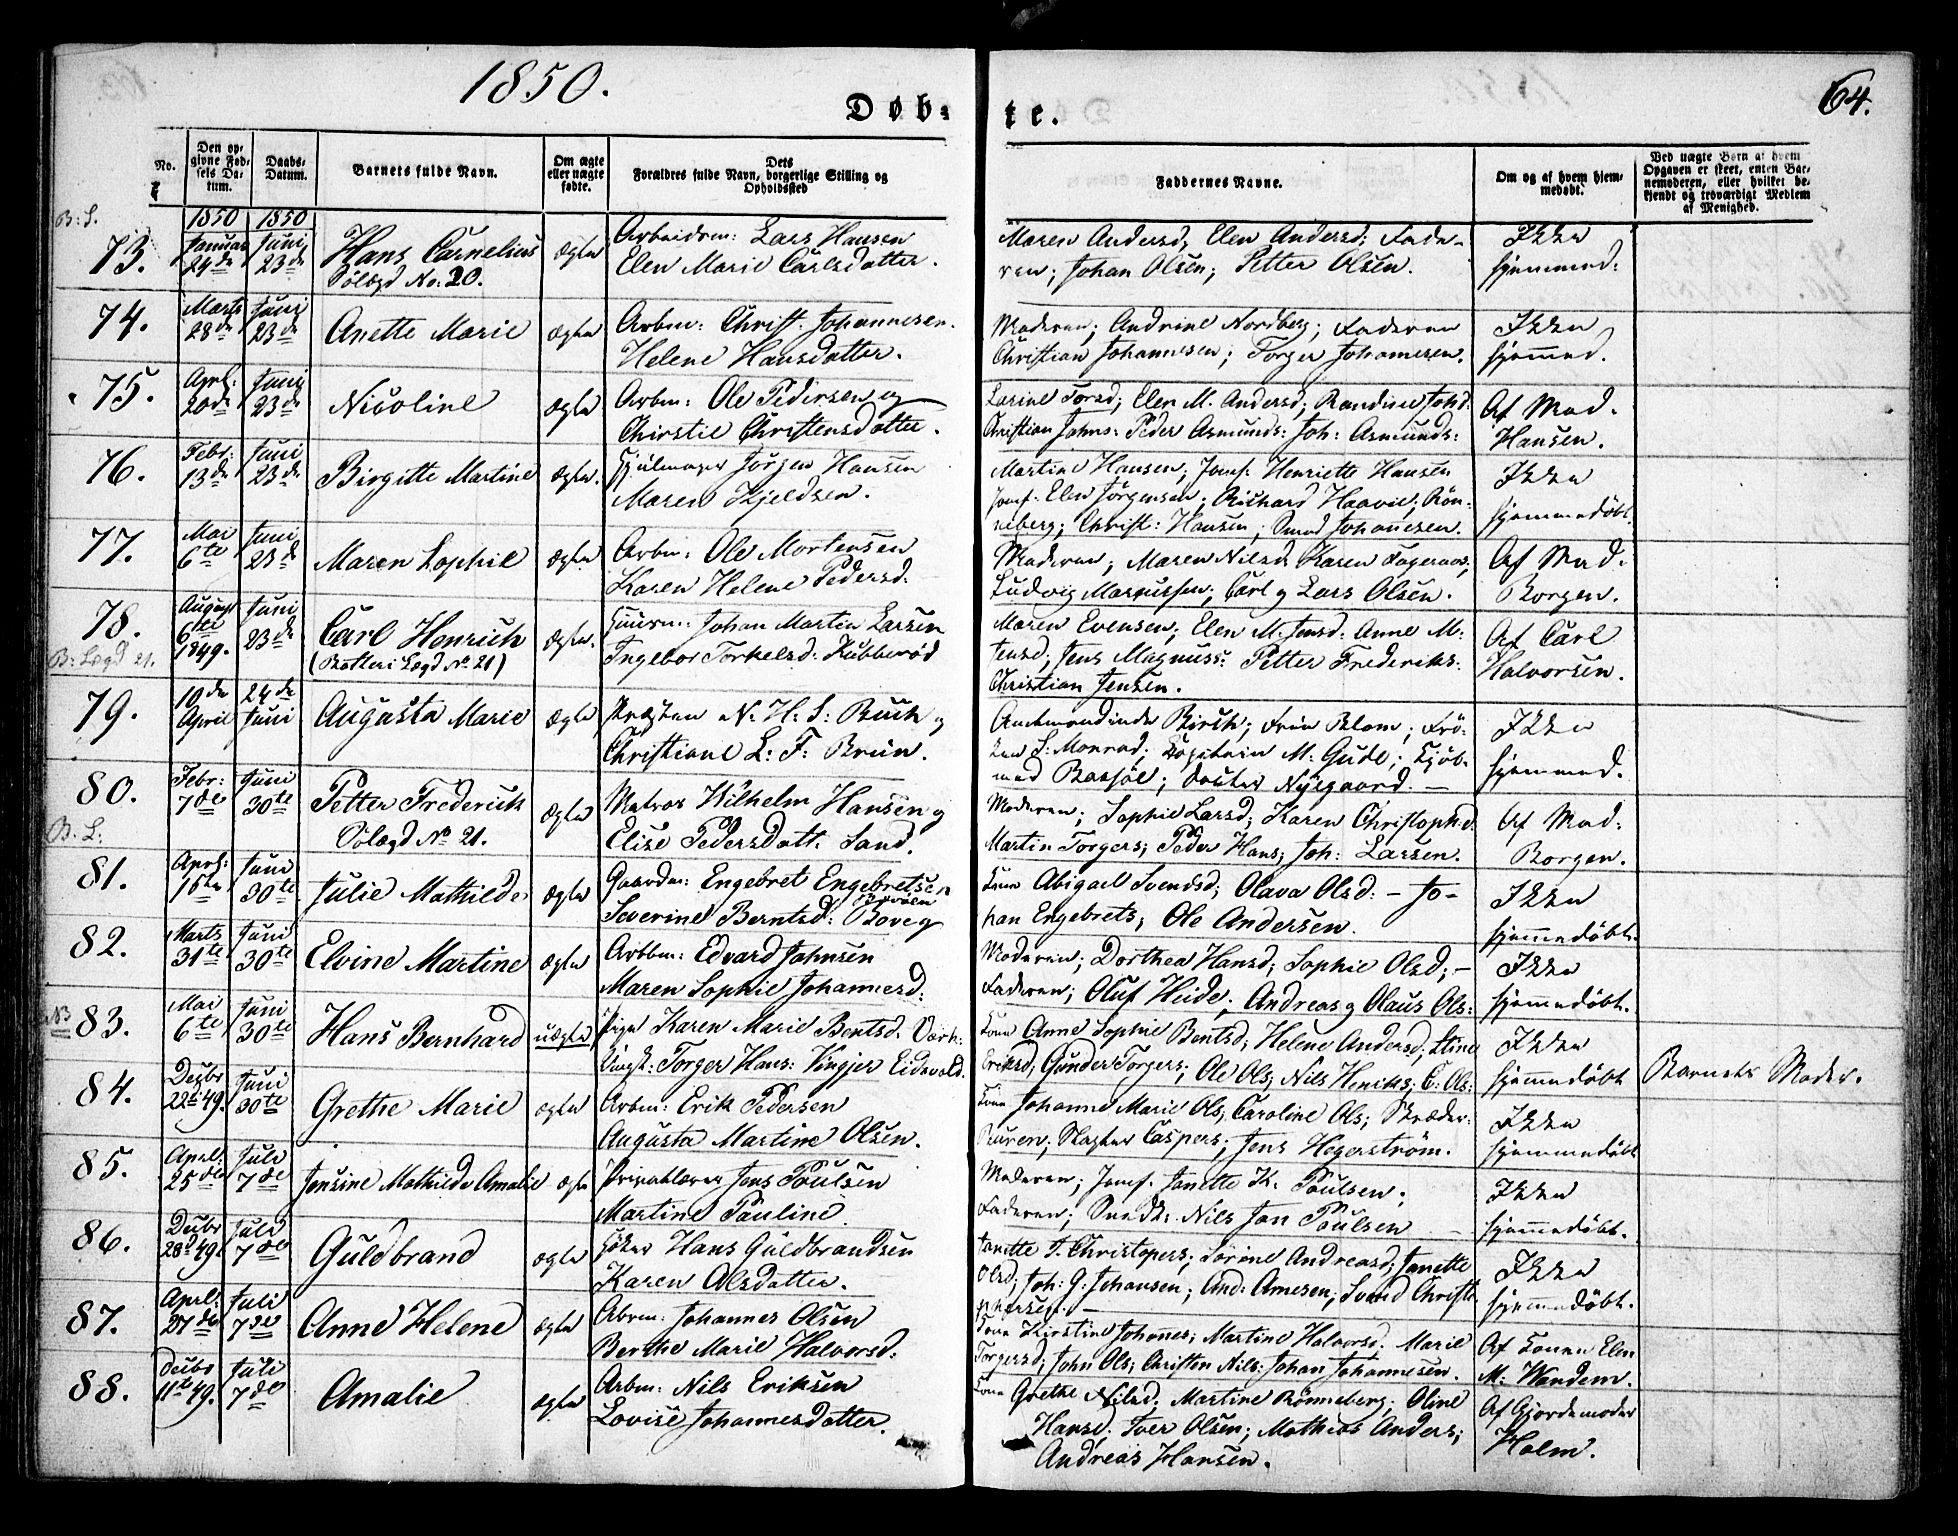 1850.
Døb-
te.
64.
No.
Den opgivne Fødsels Datum.
Daabs-Datum.
Barnets fulde Navn.
Om ægte eller uægte fødte.
Dets Forældres fulde Navn, borgerlige Stilling og Opholdssted
Faddernes Navne.
Om og af hvem hjemmedøbt.
Ved uægte Børn af hvem Opgaven er skeet, enten Barnemoderen, eller hvilket bekjendt og troværdigt Medlem af Menighed.
B: S.
1850 1850
73. Januar 24de Juni 23de Hans Cornelius ægte Arbeidsm: Lars Hansen
Sölægd No: 20. Elen Marie Carlsdatter.
Maren Andersd; Elen Andersd; Fade-
ren; Johan Olsen; Petter Olsen.
Ikke
hjemmed:
74. Marts 28de Juni 23de Anette Marie ægte Arbm: Christ. Johannesen.
Helene Hansdatter.
Moderen; Andrine Nordberg; Faderen
Christian Johannesen; Torger Johannesen.
Ikke
hjemmed.
75. Apr: 20de Juni 23de Nicoline ægte Arbm: Ole Pedersen og
Chirstie Christensdatter.
Elen M. Andersd; Randine Johd.
Christian Johns: Peder Asmunds: Joh: Asmunds:
Af Mad.
Hansen.
76. Febr: 13de Juni 23de Birgitte Martine ægte. Hjulmager Jörgen Hansen
Maren Kjeldsen.
Martine Hansen; Jomf: Henriette Hansen
Jomf: Elen Jörgensen; Richard Haavie; Rön-
neberg; Christ: Hansen; Svend Johannesen.
Ikke
hjemmedöbt.
77. Mai 6te Juni 23de Maren Sophie ægte Arbm: Ole Mortensen
Karen Helene Pedersd:
Moderen; Maren Nilsd; Karen Fageraas;
Ludvig Marcussen; Carl og Lars Olsen.
Af Mad.
Borgen.
78. August 6te 1849. Juni 23de Carl Henrich ægte. Huusm: Johan Martin Larsen
B: Lægd 21. (Rotteri Lægd No 21) Ingebor Torkelsd: Kubberöd
Maren Evensen; Elen M. Jensd: Anne M:
Jensd; Jens Magnuss: Petter Frederiks:
Christian Jensen.
Af Carl
Halvorsen.
79. 10de April 24de Juni Augusta Marie ægte Præsten N: H: S: Buch og
Christiane L: F: Brun.
Amtmandinde Birch; Frue Blom; Frö-
ken S: Monrad; Capitain M: Gude; Kjöb-
mad Bassöe; Doctor Nysgaard. —
Ikke
hjemmed.
80. Febr: 7de Juni 30te Petter Frederich ægte Matros Wilhelm Hansen og
B. L: Sölægd No 21. Elise Pedersdatt. Sand.
Moderen; Sophie Larsd; Karen Christophd.
Martin Torgers; Peder Hans; Joh: Larsen.
Af Mad:
Borgen.
81. Apr: 15te Juni 30te Julie Mathilde ægte Gaardm: Engebret Engebretsen
Severine Berntsd:
Kone Abigael Svendsd; Olava Olsd: — Jo-
han Engebrets; Ole Andersen.
Ikke
hjemmedöbt.
82. Marts 31te Juni 30te Elvine Martine ægte Arbbm: Edvard Johnsen
Maren Sophie Johannesd:
Moderen; Dorthea Hansd; Sophie Olsd; —
Faderen; Oluf Heide; Andreas og Olaus Ols:
Ikke
hjemmedöbt.
NB 83. Mai 6te Juni 30te Hans Bernhard uægte Pige Karen Marie Bentsd.
Ungk: Torger Hans: Vingjer Eidsvold.
Kone Anne Sophie Bentsd; Helene Andersd; Stine
Eriksd; Gunder Torgers; Ole Ols; Nils Henriks; C: Ols:
Ikke
hjemmedöbt
Barnets Moder.
84. Decbr 22de 49. Juni 30te Grethe Marie ægte Arbm: Erik Pedersen
Augusta Martine Olsen.
Kone Johanne Marie Ols; Caroline Ols; Skræder
Buren; Slagter Caspers; Jens Hegerström.
Ikke
hjemmedöbt
85. April 25de Juli 7de Jensine Mathilde Amalie ægte Jens Poulsen
Martine Pauline
Moderen; Jomf. Janette K. Poulsen;
Faderen; Nils Jan Poulsen —
Ikke
hjemmedöbt.
86. Decbr 28d 49. Juli 7de Guldbrand ægte Höker Hans Guldbrandsen
Karen Olsdatter.
Janette T. Christopers; Sörine Andreasd; Janette
Olsd; Joh: G. Johansen; And: Arnesen; Svend Christo
phersen. —
Ikke
hjemmedöbt.
87. April 27de Juli 7de Anne Helene ægte Arbm: Johannes Olsen
Berthe Marie Halvorsd:
Kone Kirstine Johannes; Martine Halvorsd; Marie
Torgersd; John Ols; Christen Nils; Johan Johannesen.
Af Konen Elen
M: Wandem.
88. Decbr 11te 49. Juli 7de Amalie ægte Arbm: Nils Eriksen
Lovise Johannesdatter.
Kone Grethe Nilsd; Martine Rönneberg; Oline
Hansd; Iver Olsen; Mathias Anders;
Andreas Hansen.
Af Gjordemoder
Holm.